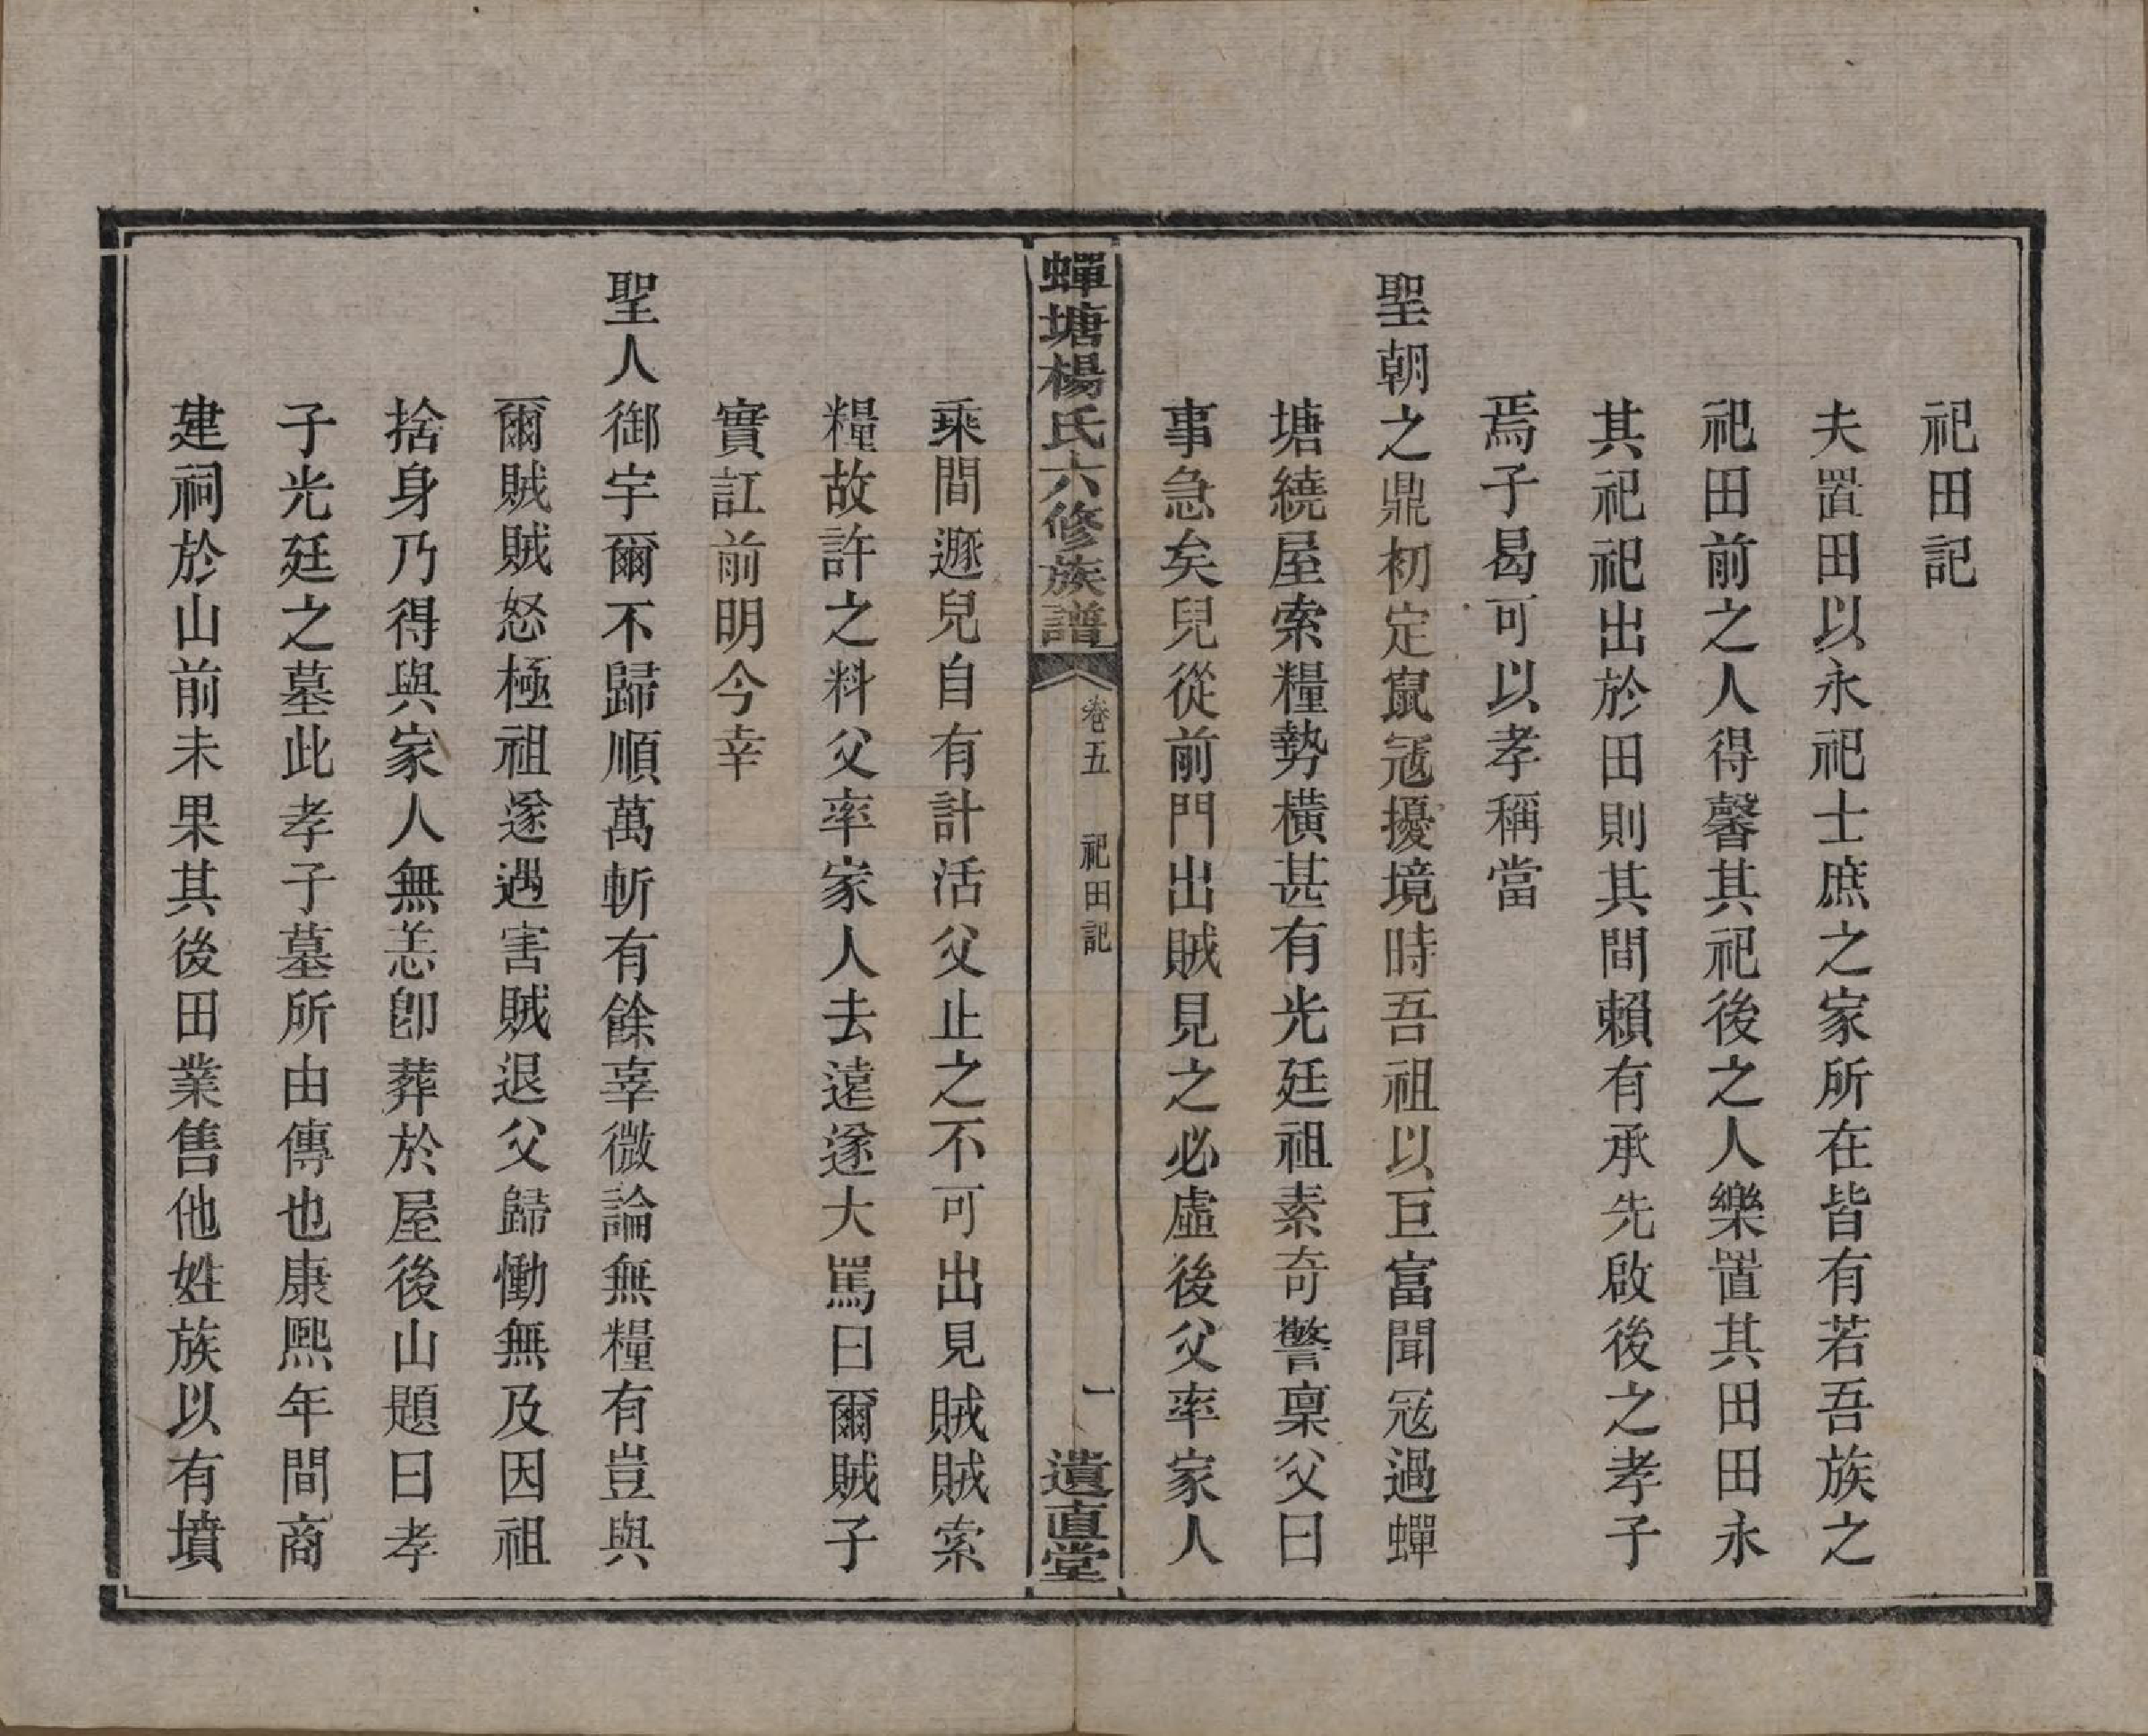 祀田記
夫置田以永祀士庶之家所在皆有若吾族之
祀田前之人得馨其祀後之人樂置其田田永
其祀祀出於田則其間賴有承先啟後之孝子
焉子曷可以孝稱當
聖朝之鼎初定竄冦擾境時吾祖以巨富聞冦過蟬
塘繞屋索糧勢橫甚有光廷祖素奇警稟父曰
事急矣兒從前門出賊見之必虛後父率家人
蟬塘楊氏六修族譜
卷五 祀田記
一
遺直堂
乘間遯兒自有計活父止之不可出見賊賊索
糧故許之料父率家人去遠遂大罵曰爾賊子
實訌前明今幸
聖人御宇爾不歸順萬斬有餘辜微論無糧有豈與
爾賊賊怒極祖遂遇害賊退父歸慟無及因祖
捨身乃得與家人無恙卽葬於屋後山題曰孝
子光廷之墓此孝子墓所由傳也康熙年間商
建祠於山前未果其後田業售他姓族以有墳